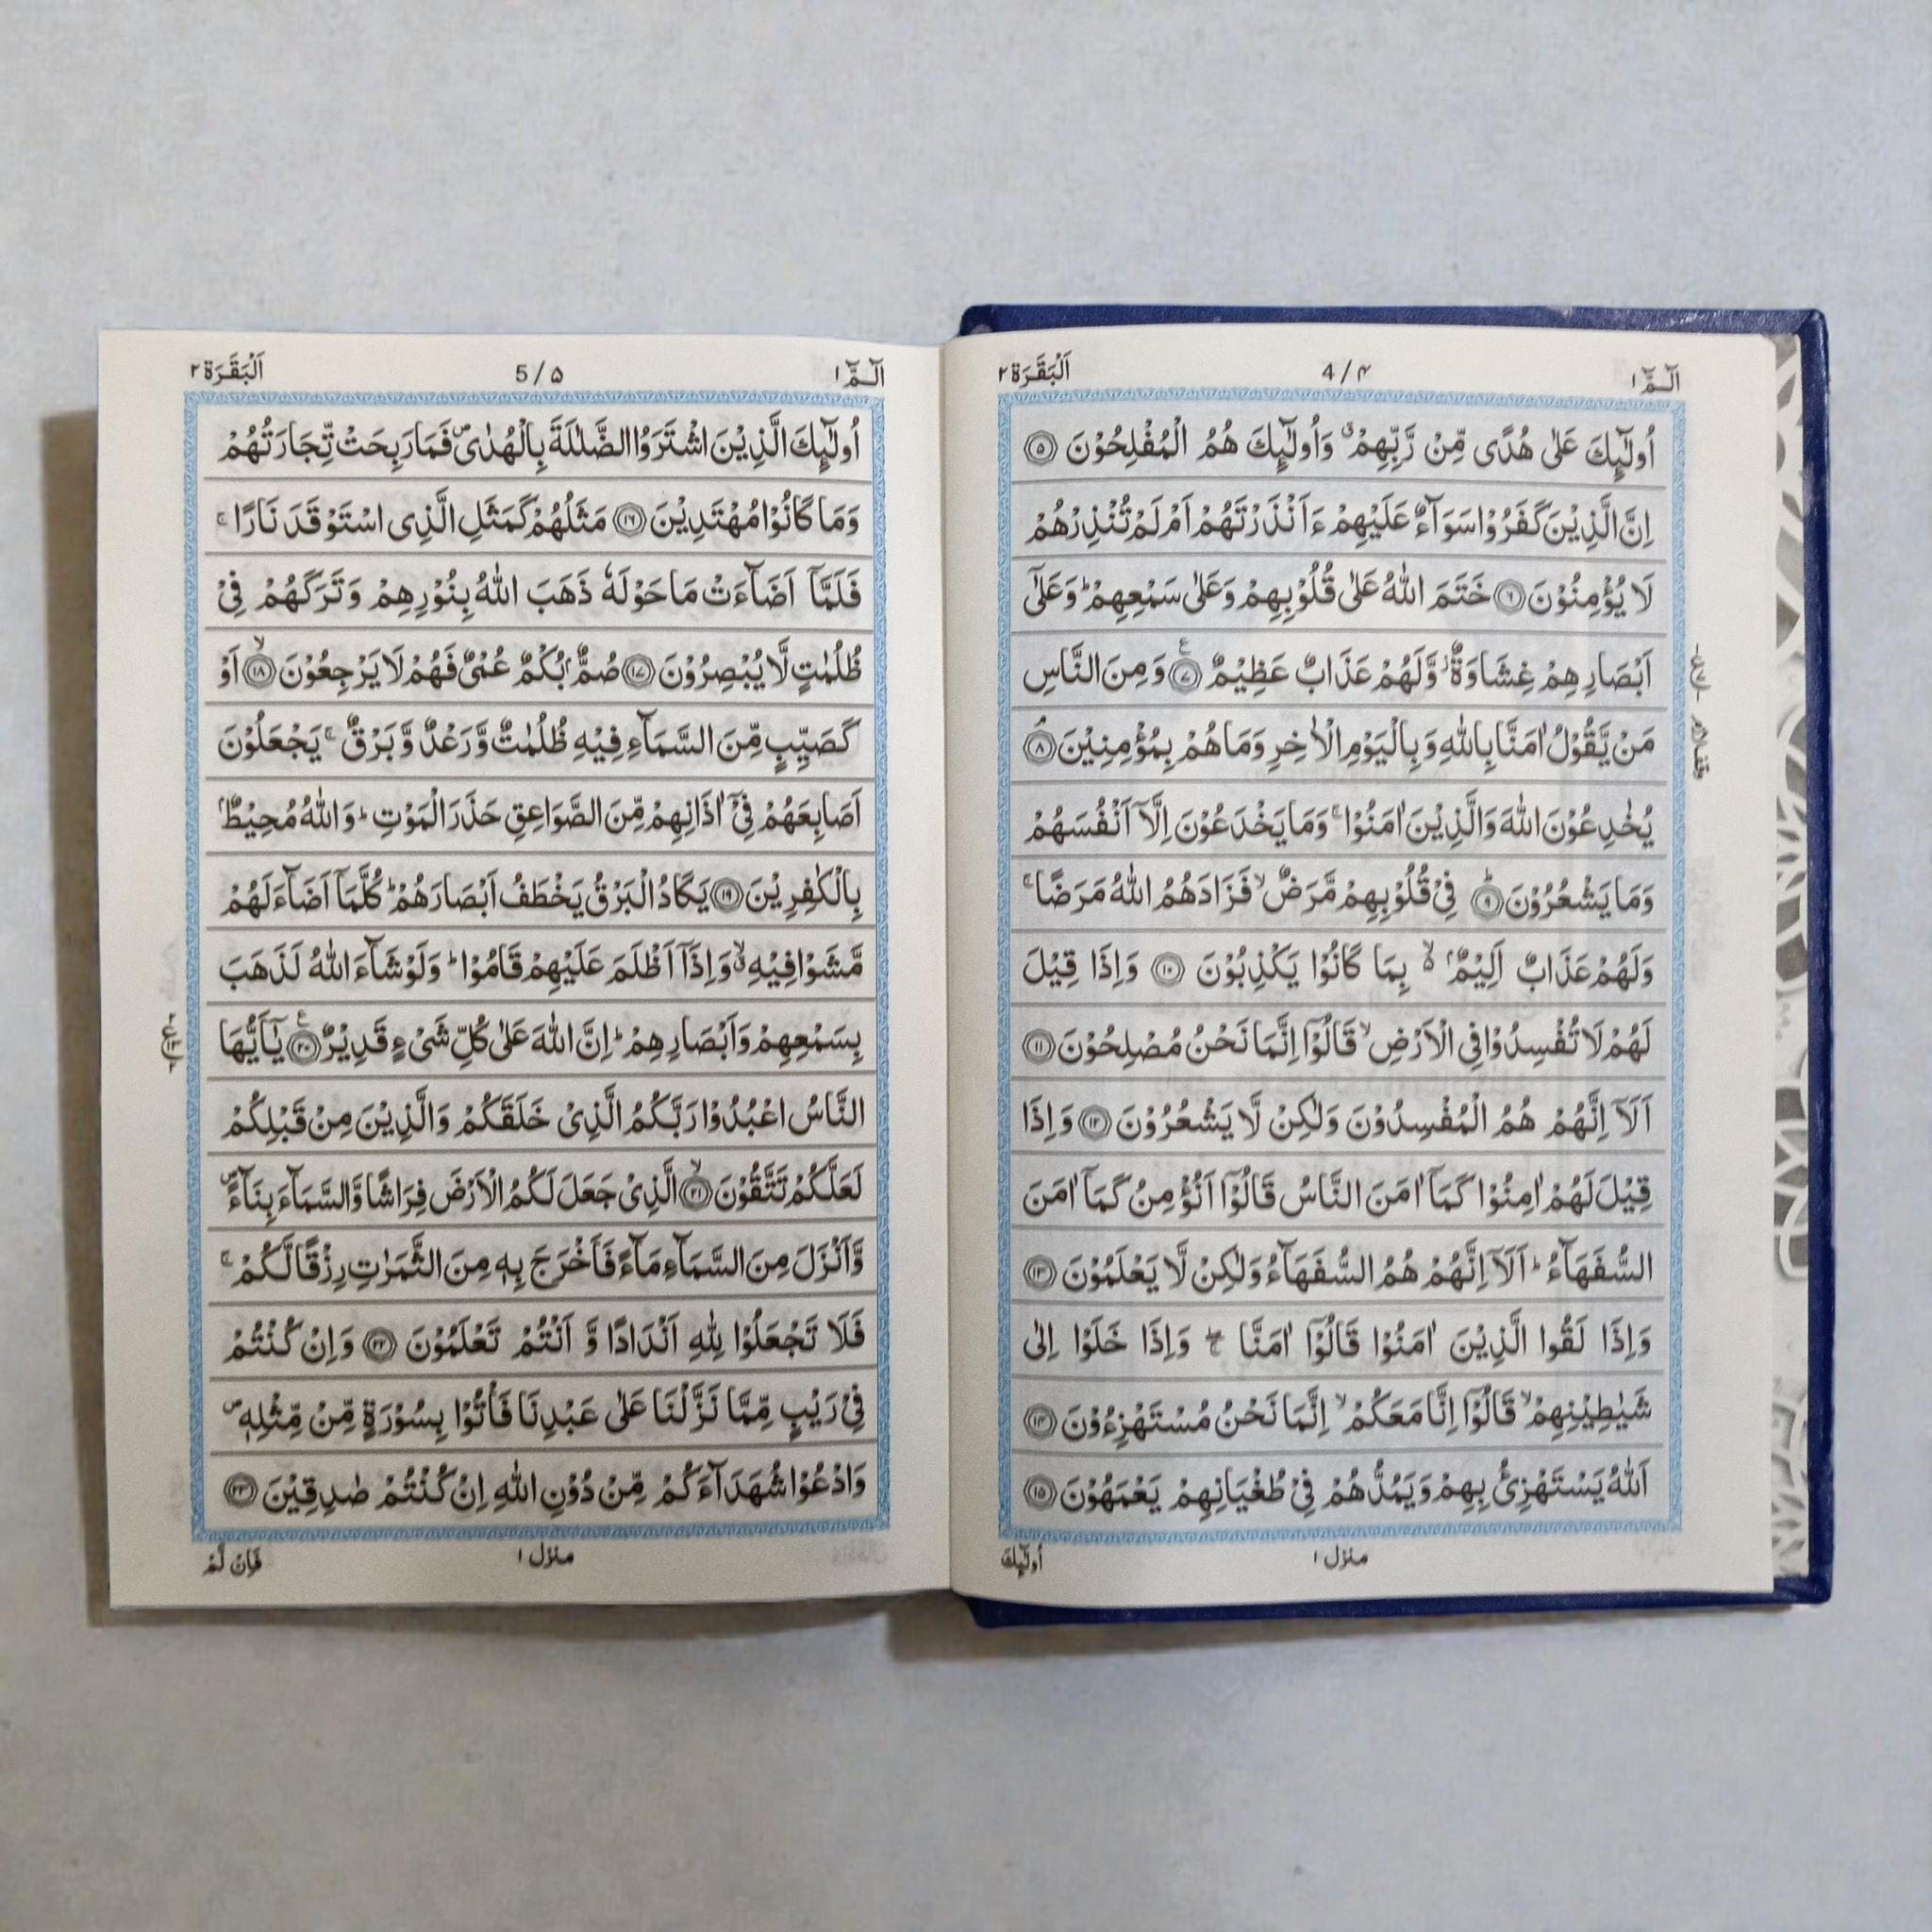 الٓـمّٓ ۱
4/۴
اَلْبَقَرَة ۲
اُولٰٓئِكَ عَلٰى هُدًى مِّنْ رَّبِّهِمْ ۗ وَاُولٰٓئِكَ هُمُ الْمُفْلِحُوْنَ ۝۵
اِنَّ الَّذِيْنَ كَفَرُوْا سَوَآءٌ عَلَيْهِمْ ءَاَنْذَرْتَهُمْ اَمْ لَمْ تُنْذِرْهُمْ
لَا يُؤْمِنُوْنَ ۝۶ خَتَمَ اللّٰهُ عَلٰى قُلُوْبِهِمْ وَعَلٰى سَمْعِهِمْ ؕ وَعَلٰٓى
اَبْصَارِهِمْ غِشَاوَةٌ ؗ وَّلَهُمْ عَذَابٌ عَظِيْمٌ ۝۷ وَمِنَ النَّاسِ
مَنْ يَّقُوْلُ اٰمَنَّا بِاللّٰهِ وَبِالْيَوْمِ الْاٰخِرِ وَمَا هُمْ بِمُؤْمِنِيْنَ ۝۸
يُخٰدِعُوْنَ اللّٰهَ وَالَّذِيْنَ اٰمَنُوْا ۚ وَمَا يَخْدَعُوْنَ اِلَّآ اَنْفُسَهُمْ
وَمَا يَشْعُرُوْنَ ۝۹ فِىْ قُلُوْبِهِمْ مَّرَضٌ ۙ فَزَادَهُمُ اللّٰهُ مَرَضًا ۚ
وَلَهُمْ عَذَابٌ اَلِيْمٌ ۢ ۙ۬ بِمَا كَانُوْا يَكْذِبُوْنَ ۝۱۰ وَاِذَا قِيْلَ
لَهُمْ لَا تُفْسِدُوْا فِى الْاَرْضِ ۙ قَالُوْٓا اِنَّمَا نَحْنُ مُصْلِحُوْنَ ۝۱۱
اَلَآ اِنَّهُمْ هُمُ الْمُفْسِدُوْنَ وَلٰكِنْ لَّا يَشْعُرُوْنَ ۝۱۲ وَاِذَا
قِيْلَ لَهُمْ اٰمِنُوْا كَمَآ اٰمَنَ النَّاسُ قَالُوْٓا اَنُؤْمِنُ كَمَآ اٰمَنَ
السُّفَهَآءُ ؕ اَلَآ اِنَّهُمْ هُمُ السُّفَهَآءُ وَلٰكِنْ لَّا يَعْلَمُوْنَ ۝۱۳
وَاِذَا لَقُوا الَّذِيْنَ اٰمَنُوْا قَالُوْٓا اٰمَنَّا ۖۚ وَاِذَا خَلَوْا اِلٰى
شَيٰطِيْنِهِمْ ۙ قَالُوْٓا اِنَّا مَعَكُمْ ۙ اِنَّمَا نَحْنُ مُسْتَهْزِءُوْنَ ۝۱۴
اَللّٰهُ يَسْتَهْزِئُ بِهِمْ وَيَمُدُّهُمْ فِىْ طُغْيَانِهِمْ يَعْمَهُوْنَ ۝۱۵
منزل ۱
اُولٰٓئِكَ
الٓـمّٓ ۱
5/۵
اَلْبَقَرَة ۲
اُولٰٓئِكَ الَّذِيْنَ اشْتَرَوُا الضَّلٰلَةَ بِالْهُدٰى ۪ فَمَا رَبِحَتْ تِّجَارَتُهُمْ
وَمَا كَانُوْا مُهْتَدِيْنَ ۝۱۶ مَثَلُهُمْ كَمَثَلِ الَّذِى اسْتَوْقَدَ نَارًا ۚ
فَلَمَّآ اَضَآءَتْ مَا حَوْلَهٗ ذَهَبَ اللّٰهُ بِنُوْرِهِمْ وَتَرَكَهُمْ فِىْ
ظُلُمٰتٍ لَّا يُبْصِرُوْنَ ۝۱۷ صُمٌّ ۢ بُكْمٌ عُمْىٌ فَهُمْ لَا يَرْجِعُوْنَ ۝۱۸ اَوْ
كَصَيِّبٍ مِّنَ السَّمَآءِ فِيْهِ ظُلُمٰتٌ وَّرَعْدٌ وَّبَرْقٌ ۚ يَجْعَلُوْنَ
اَصَابِعَهُمْ فِىْٓ اٰذَانِهِمْ مِّنَ الصَّوَاعِقِ حَذَرَ الْمَوْتِ ؕ وَاللّٰهُ مُحِيْطٌ ۢ
بِالْكٰفِرِيْنَ ۝۱۹ يَكَادُ الْبَرْقُ يَخْطَفُ اَبْصَارَهُمْ ؕ كُلَّمَآ اَضَآءَ لَهُمْ
مَّشَوْا فِيْهِ ۙ وَاِذَآ اَظْلَمَ عَلَيْهِمْ قَامُوْا ؕ وَلَوْ شَآءَ اللّٰهُ لَذَهَبَ
بِسَمْعِهِمْ وَاَبْصَارِهِمْ ؕ اِنَّ اللّٰهَ عَلٰى كُلِّ شَىْءٍ قَدِيْرٌ ۝۲۰ يٰٓاَيُّهَا
النَّاسُ اعْبُدُوْا رَبَّكُمُ الَّذِىْ خَلَقَكُمْ وَالَّذِيْنَ مِنْ قَبْلِكُمْ
لَعَلَّكُمْ تَتَّقُوْنَ ۝۲۱ الَّذِىْ جَعَلَ لَكُمُ الْاَرْضَ فِرَاشًا وَّالسَّمَآءَ بِنَآءً ۪
وَّاَنْزَلَ مِنَ السَّمَآءِ مَآءً فَاَخْرَجَ بِهٖ مِنَ الثَّمَرٰتِ رِزْقًا لَّكُمْ ۚ
فَلَا تَجْعَلُوْا لِلّٰهِ اَنْدَادًا وَّ اَنْتُمْ تَعْلَمُوْنَ ۝۲۲ وَاِنْ كُنْتُمْ
فِىْ رَيْبٍ مِّمَّا نَزَّلْنَا عَلٰى عَبْدِنَا فَاْتُوْا بِسُوْرَةٍ مِّنْ مِّثْلِهٖ ۪
وَادْعُوْا شُهَدَآءَكُمْ مِّنْ دُوْنِ اللّٰهِ اِنْ كُنْتُمْ صٰدِقِيْنَ ۝۲۳
منزل ۱
فَاِنْ لَّمْ